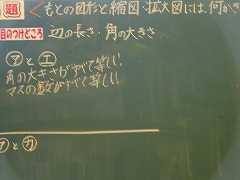 題 もとの図形と縮図・拡大図には、何か
目のつけどころ 辺の長さ・角の大きさ
㋐と㋓
角の大きさがすべて等しい!
マスの数がすべて等しい
と㋕